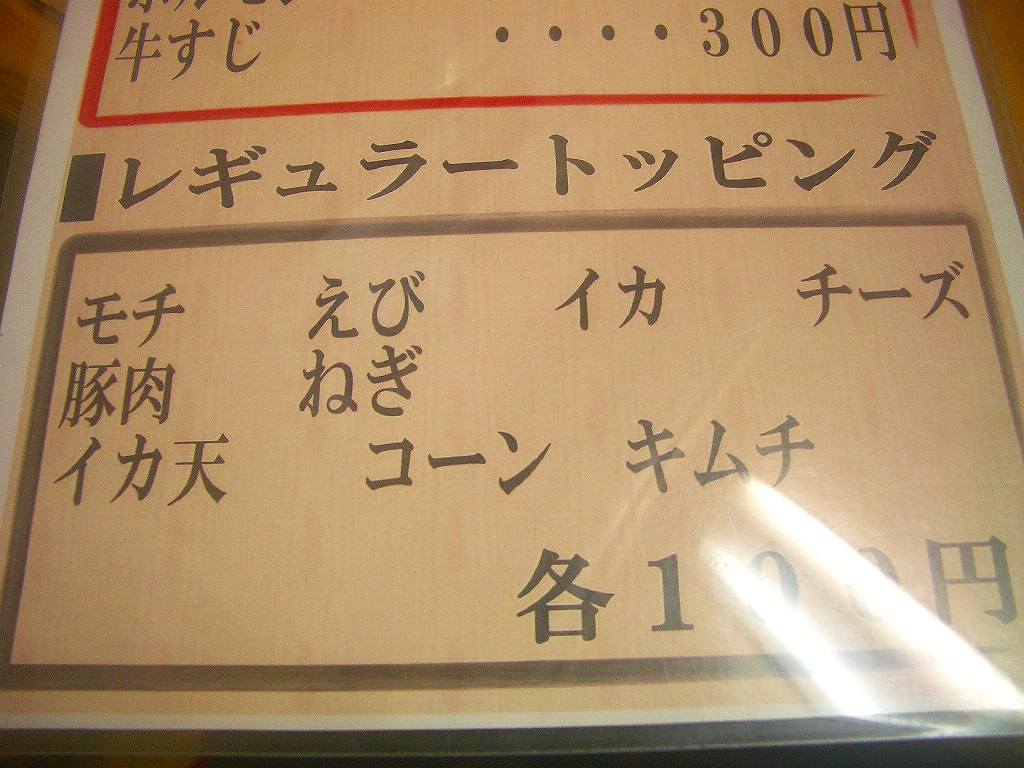 牛すじ ・・・・300円
■レギュラートッピング
モチ えび イカ チーズ
豚肉 ねぎ
イカ天 コーン キムチ
各100円